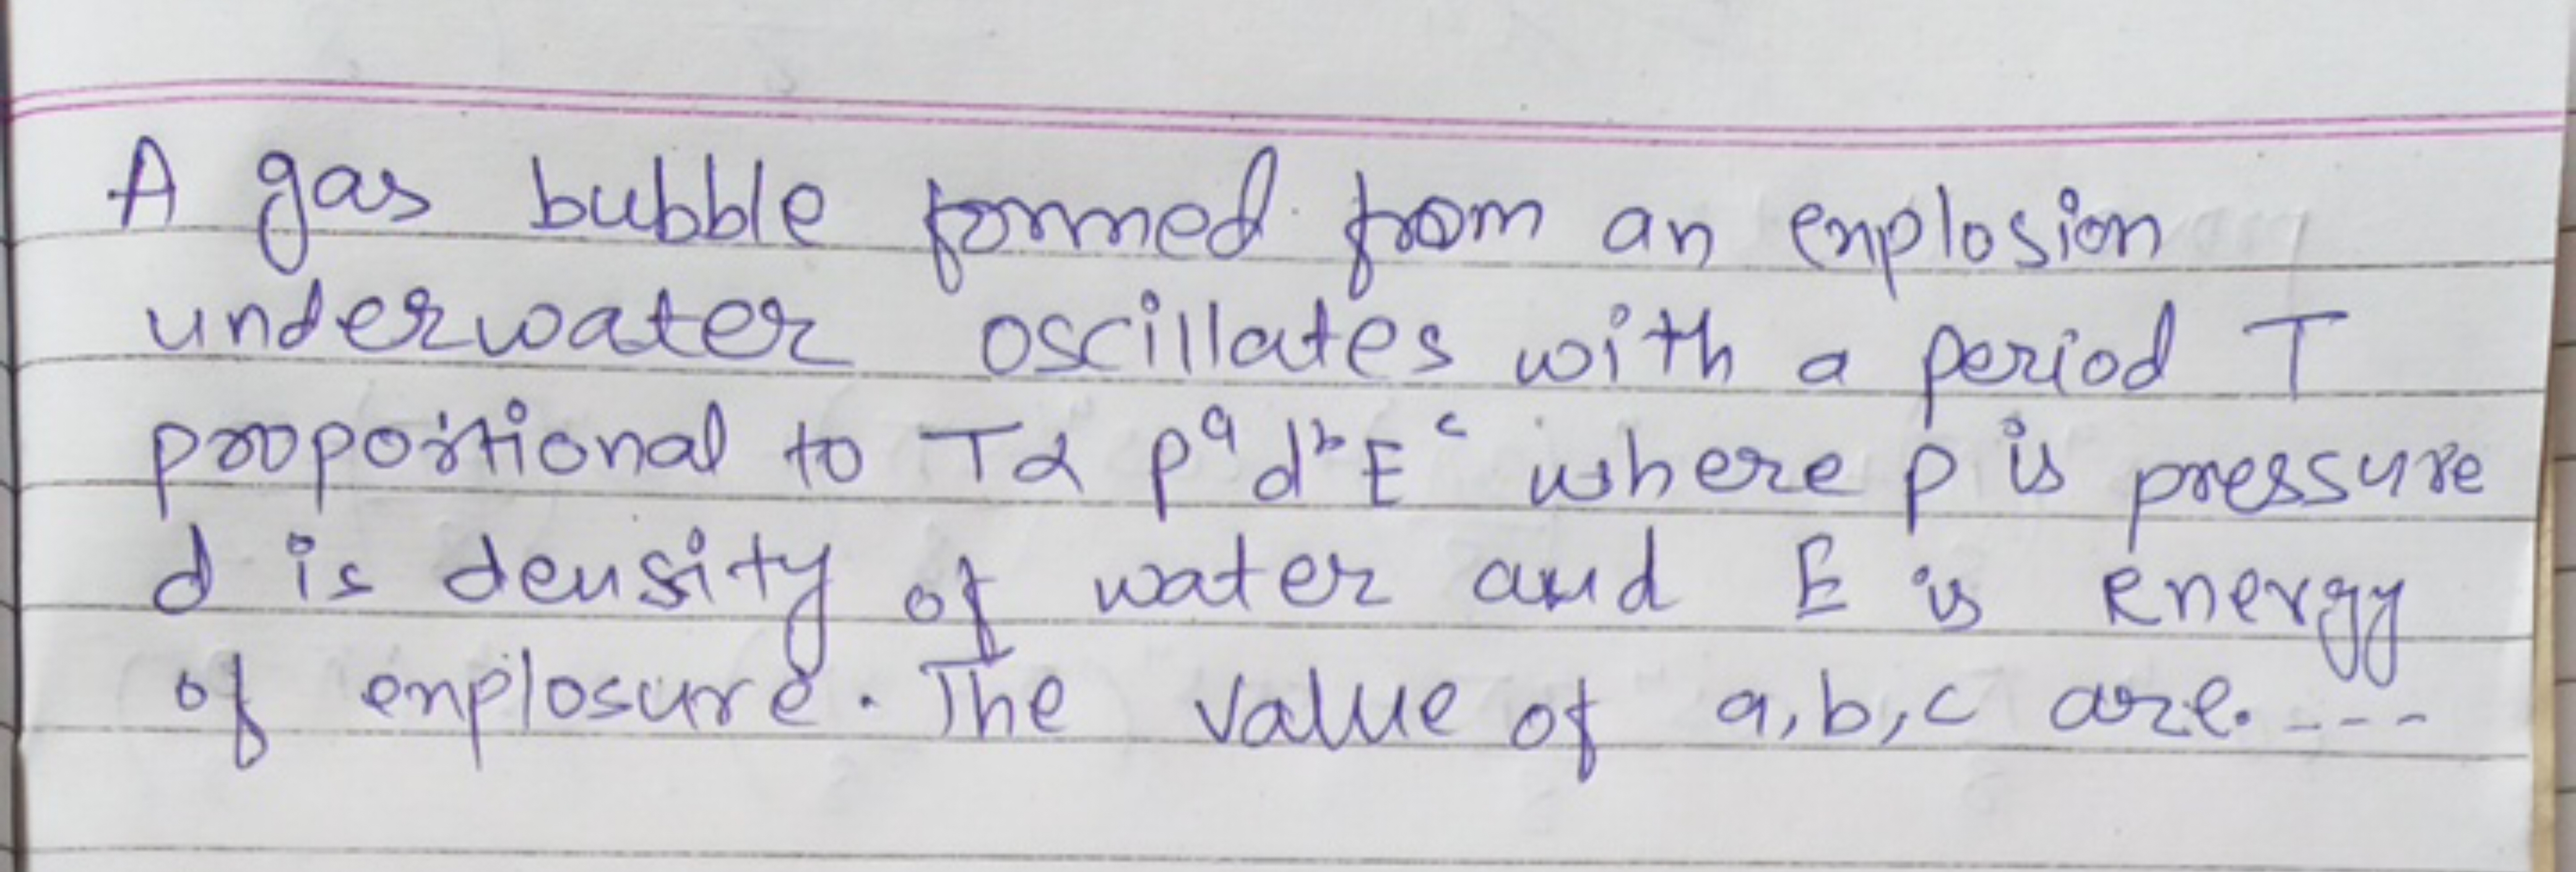 A gas bubble formed from an explosion
underwater oscillates with a period T
proportional to T α p^a d^b E^c where p is pressure
d is density of water and E is energy
of explosure. The value of a,b,c are.---